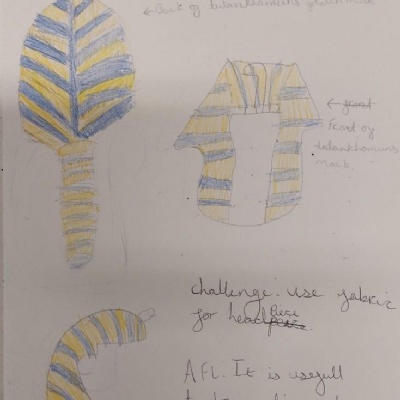 ← Back of tutankhamuns death mask
← front
Front of
tutankhamuns
mask
challenge. use fabric
for headpiece
piece
AFL. It is usefull